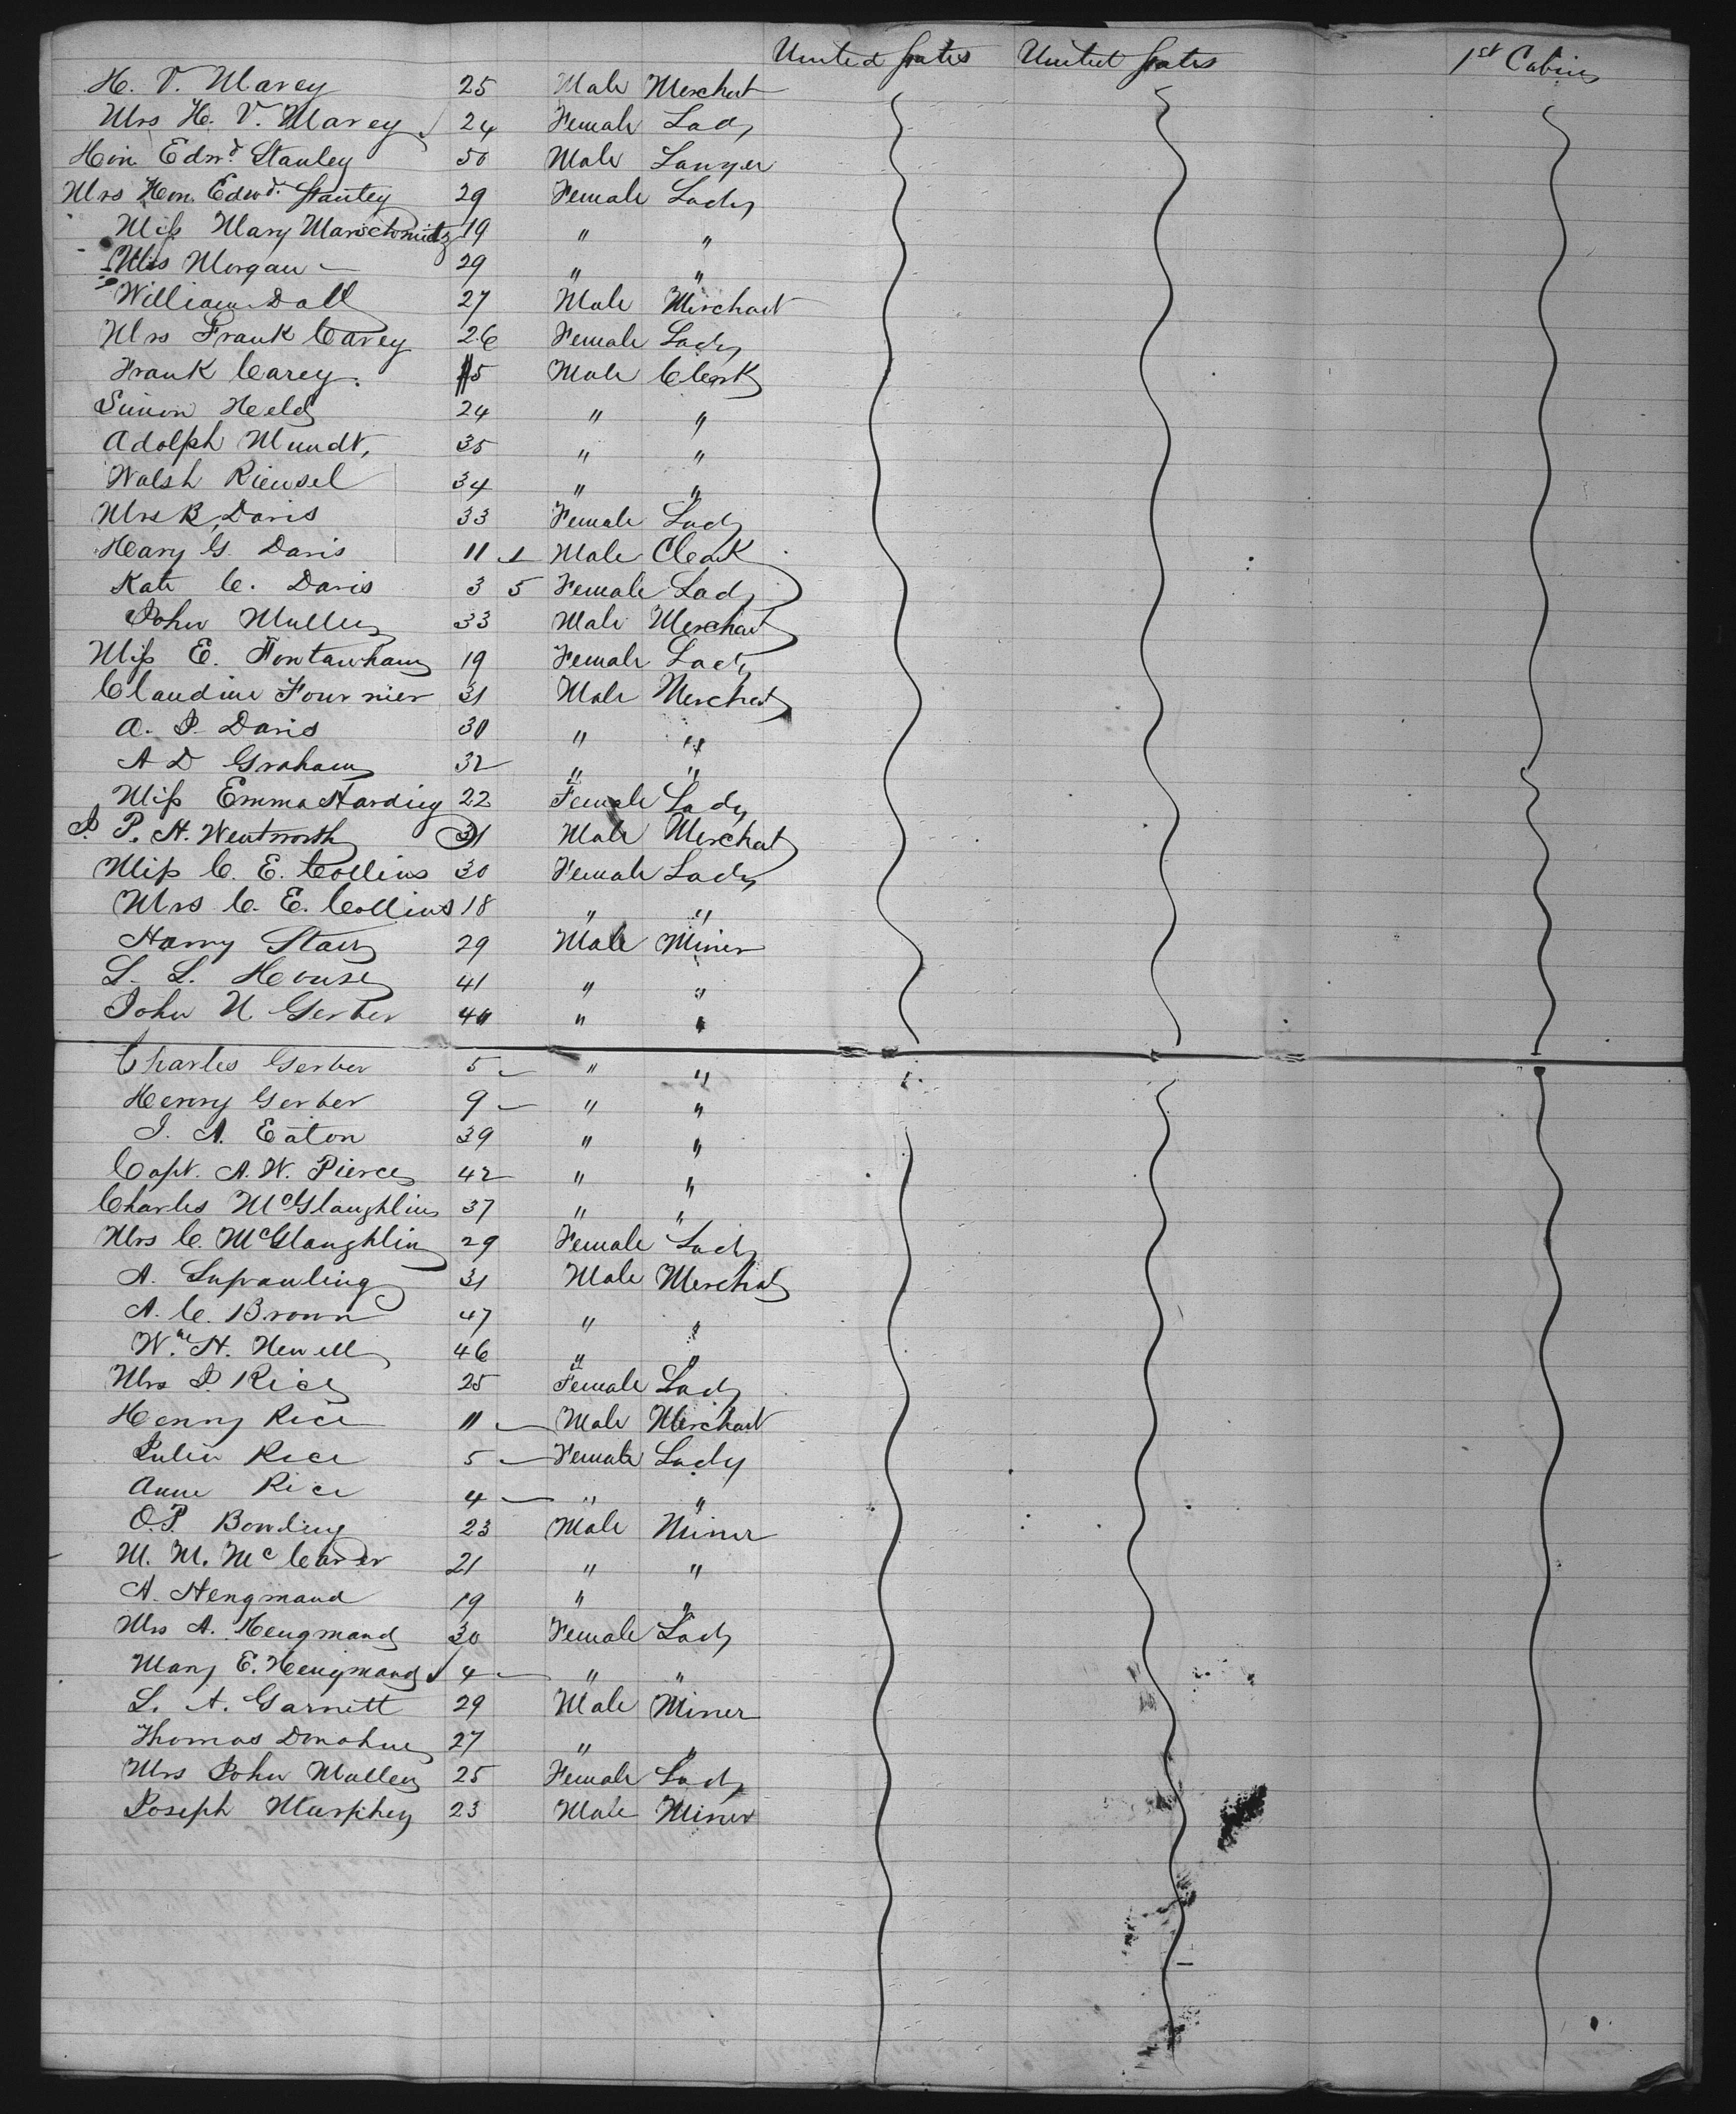 United States United States 1st Cabin
H. V. Marey 25 Male Merchant
Mrs H. V. Marey 24 Female Lady
Hon Edwd. Stanley 50 Male Lawyer
Mrs Hon. Edwd. Stanley 29 Female Lady
Miss Mary 19 " "
Miss Morgan 29 " "
William Dall 27 Male Merchant
Mrs Frank Carey 26 Female Lady
Frank Carey. 5 Male Clerk
Simon Held 24 " "
Adolph Mundt, 35 " "
Walsh Riensel 34 " "
Mrs B. Davis 33 Female Lady
Harry G. Davis 11 Male Clerk
Kate C. Davis 3 5 Female Lady
John Mullen 33 Male Merchant
Miss E. 19 Female Lady
Claudine Fournier 31 Male Merchant
A. J. Davis 30 " "
A D Graham 32 " "
Miss Emma Harding 22 Female Lady
J. P. H. Wentworth 31 Male Merchant
Miss C. E. Collins 30 Female Lady
Mrs C. E. Collins 18 " "
Harry Starr 29 Male Miner
L. L. House 41 " "
John N Gerber 40 " "
Charles Gerber 5 " "
Henry Gerber 9 " "
I. A. Eaton 39 " "
Capt. A. W. Pierce 42 " "
Charles McGlaughlin 37 " "
Mrs C. McGlaughlin 29 Female Lady
A. 31 Male Merchat
A. C. Brown 47 " "
Wm. H. Newell 46 " "
Mrs J. Rice 25 Female Lady
Henry Rice 11 Male Merchant
Julia Rice 5 Female Lady
Anne Rice 4 " "
O. P. Bowding 23 Male Miner
M. M. Mc 21 " "
A. Hengmand 19 " "
Mrs A. Hengmand 30 Female Lady
Mary E. Hengmand 4 " "
L. A. Garnett 29 Male Miner
Thomas Donahue 27 " "
Mrs John Mullen 25 Female Lady
Joseph Murphey 23 Male Miner